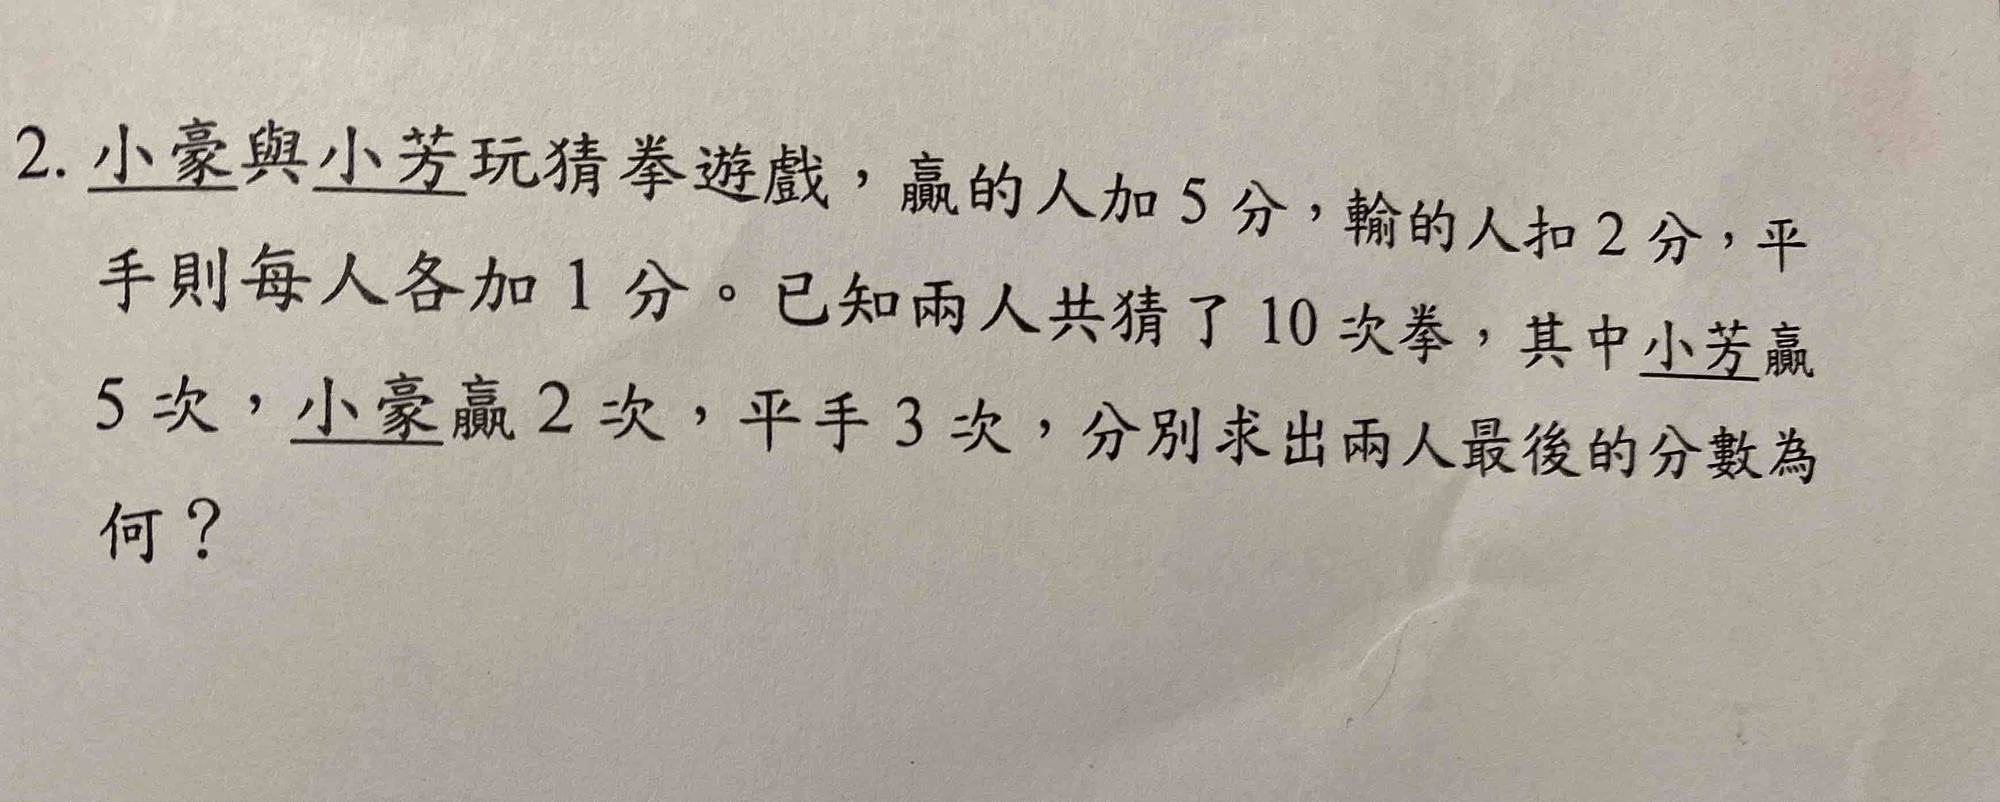 2. 小豪與小芳玩猜拳遊戲，贏的人加 5 分，輸的人扣 2 分，平
手則每人各加 1 分。已知兩人共猜了 10 次拳，其中小芳贏
5 次，小豪贏 2 次，平手 3 次，分別求出兩人最後的分數為
何？